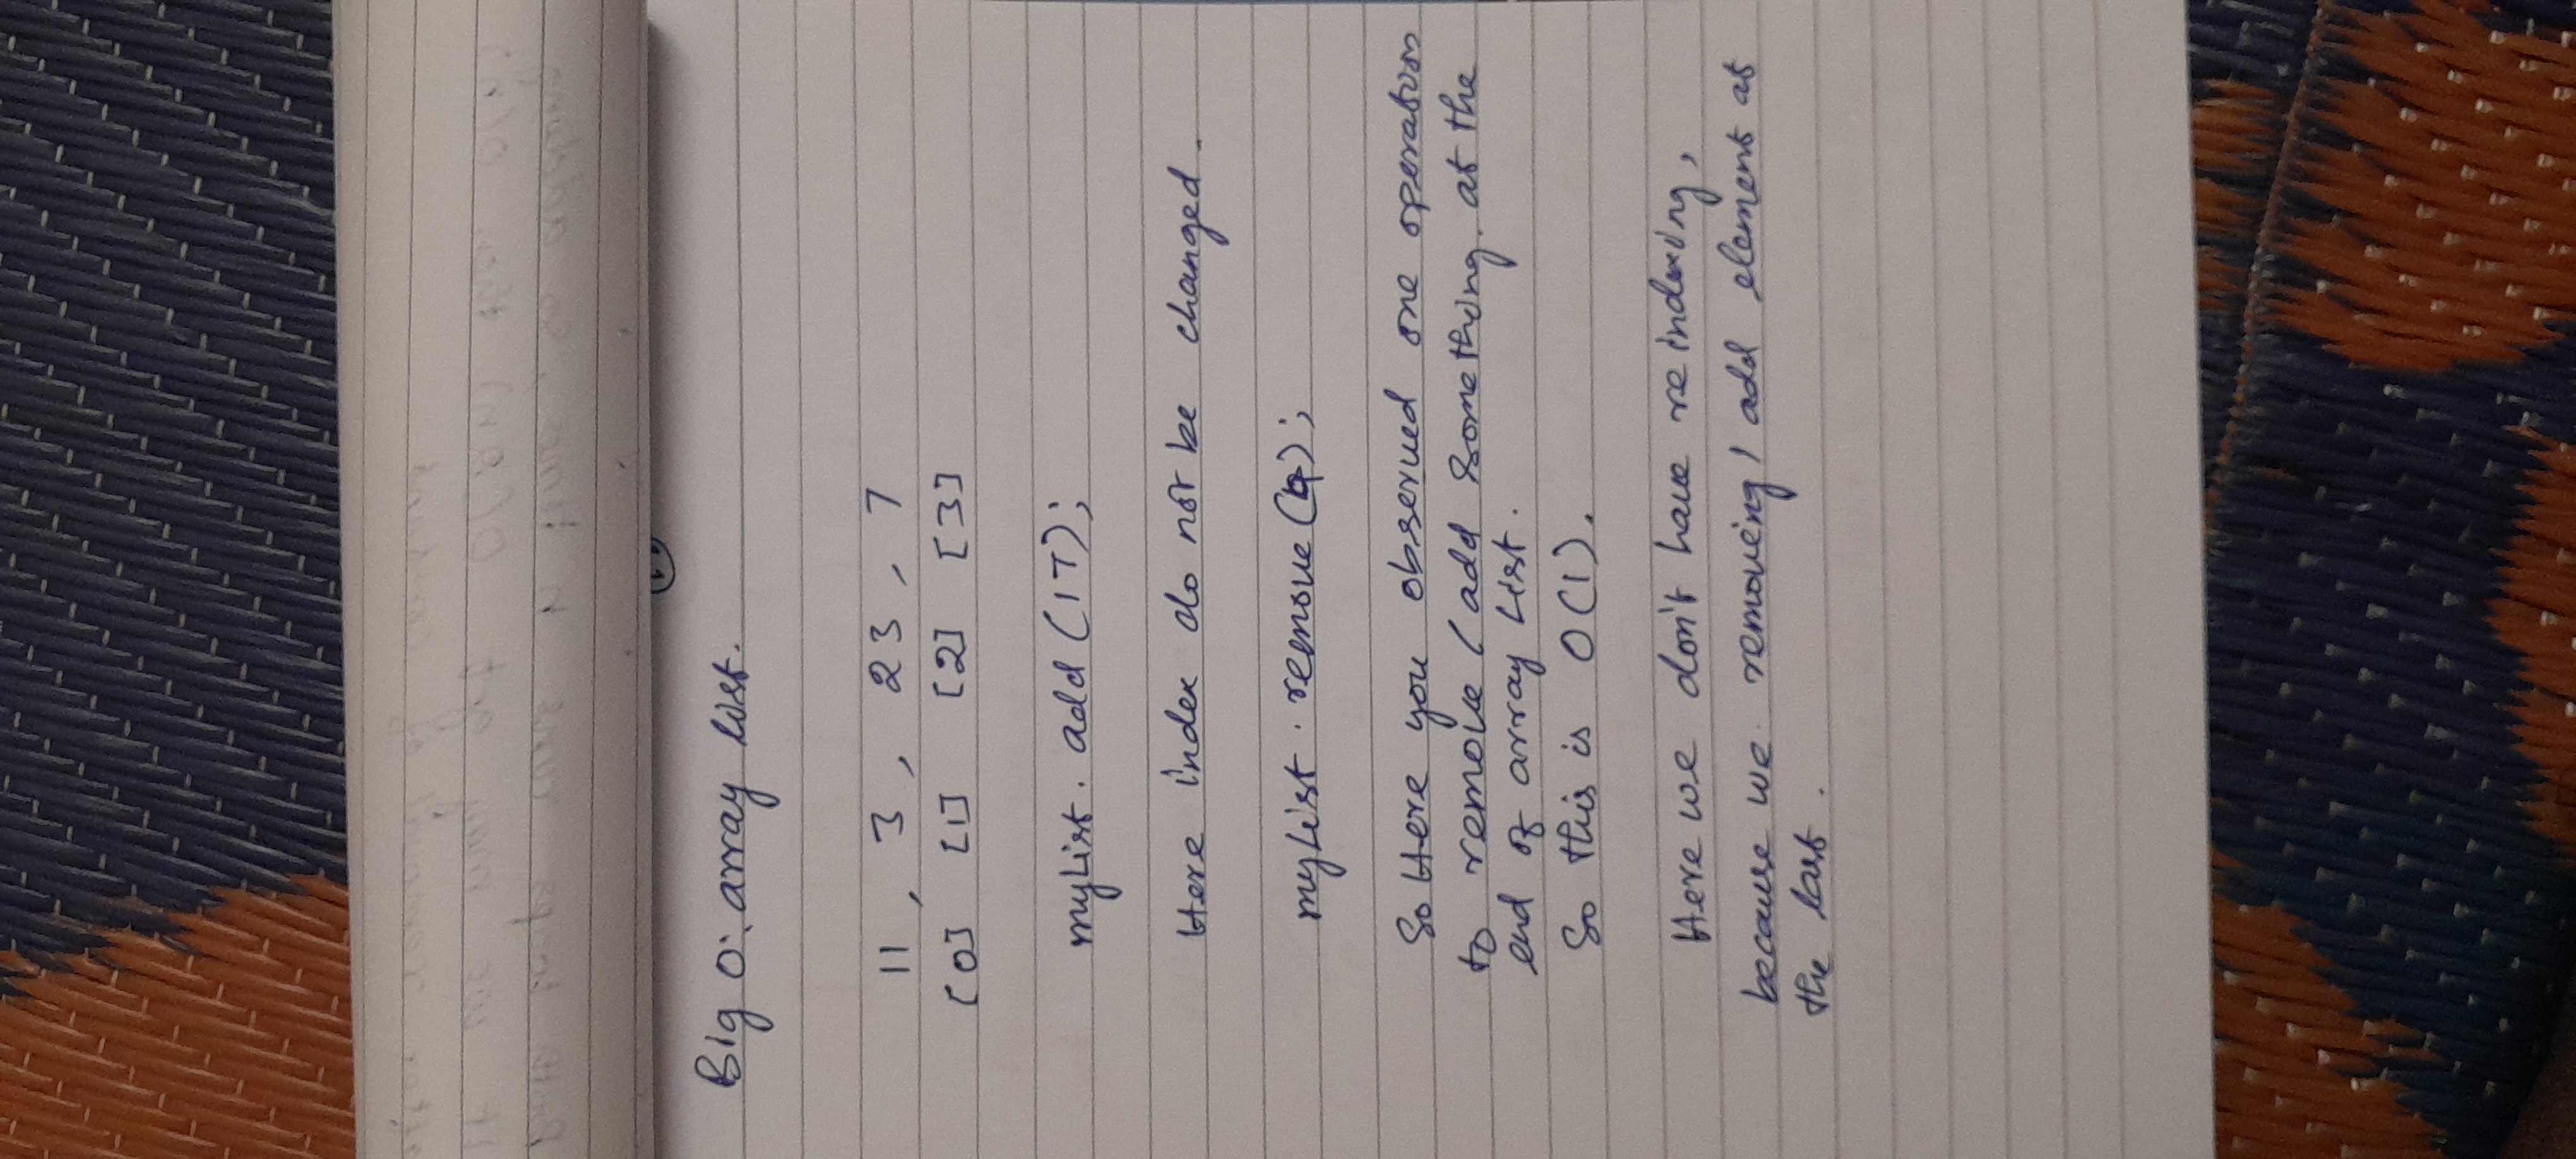 Big O: array list.
11 , 3 , 23 , 7
[0] [1] [2] [3]
myList. add (17);
Here index do not be changed.
myList. remove (4);
So Here you observed one operation
to remove / add something. at the
end of array List.
So this is O(1).
Here we don't have reindexing,
because we removing / add element at
the last.